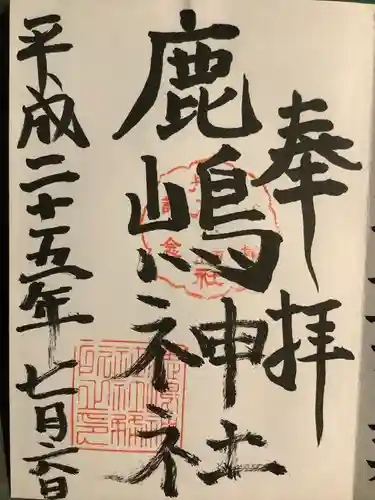 奉拝
鹿嶋神社
平成二十五年七月六日